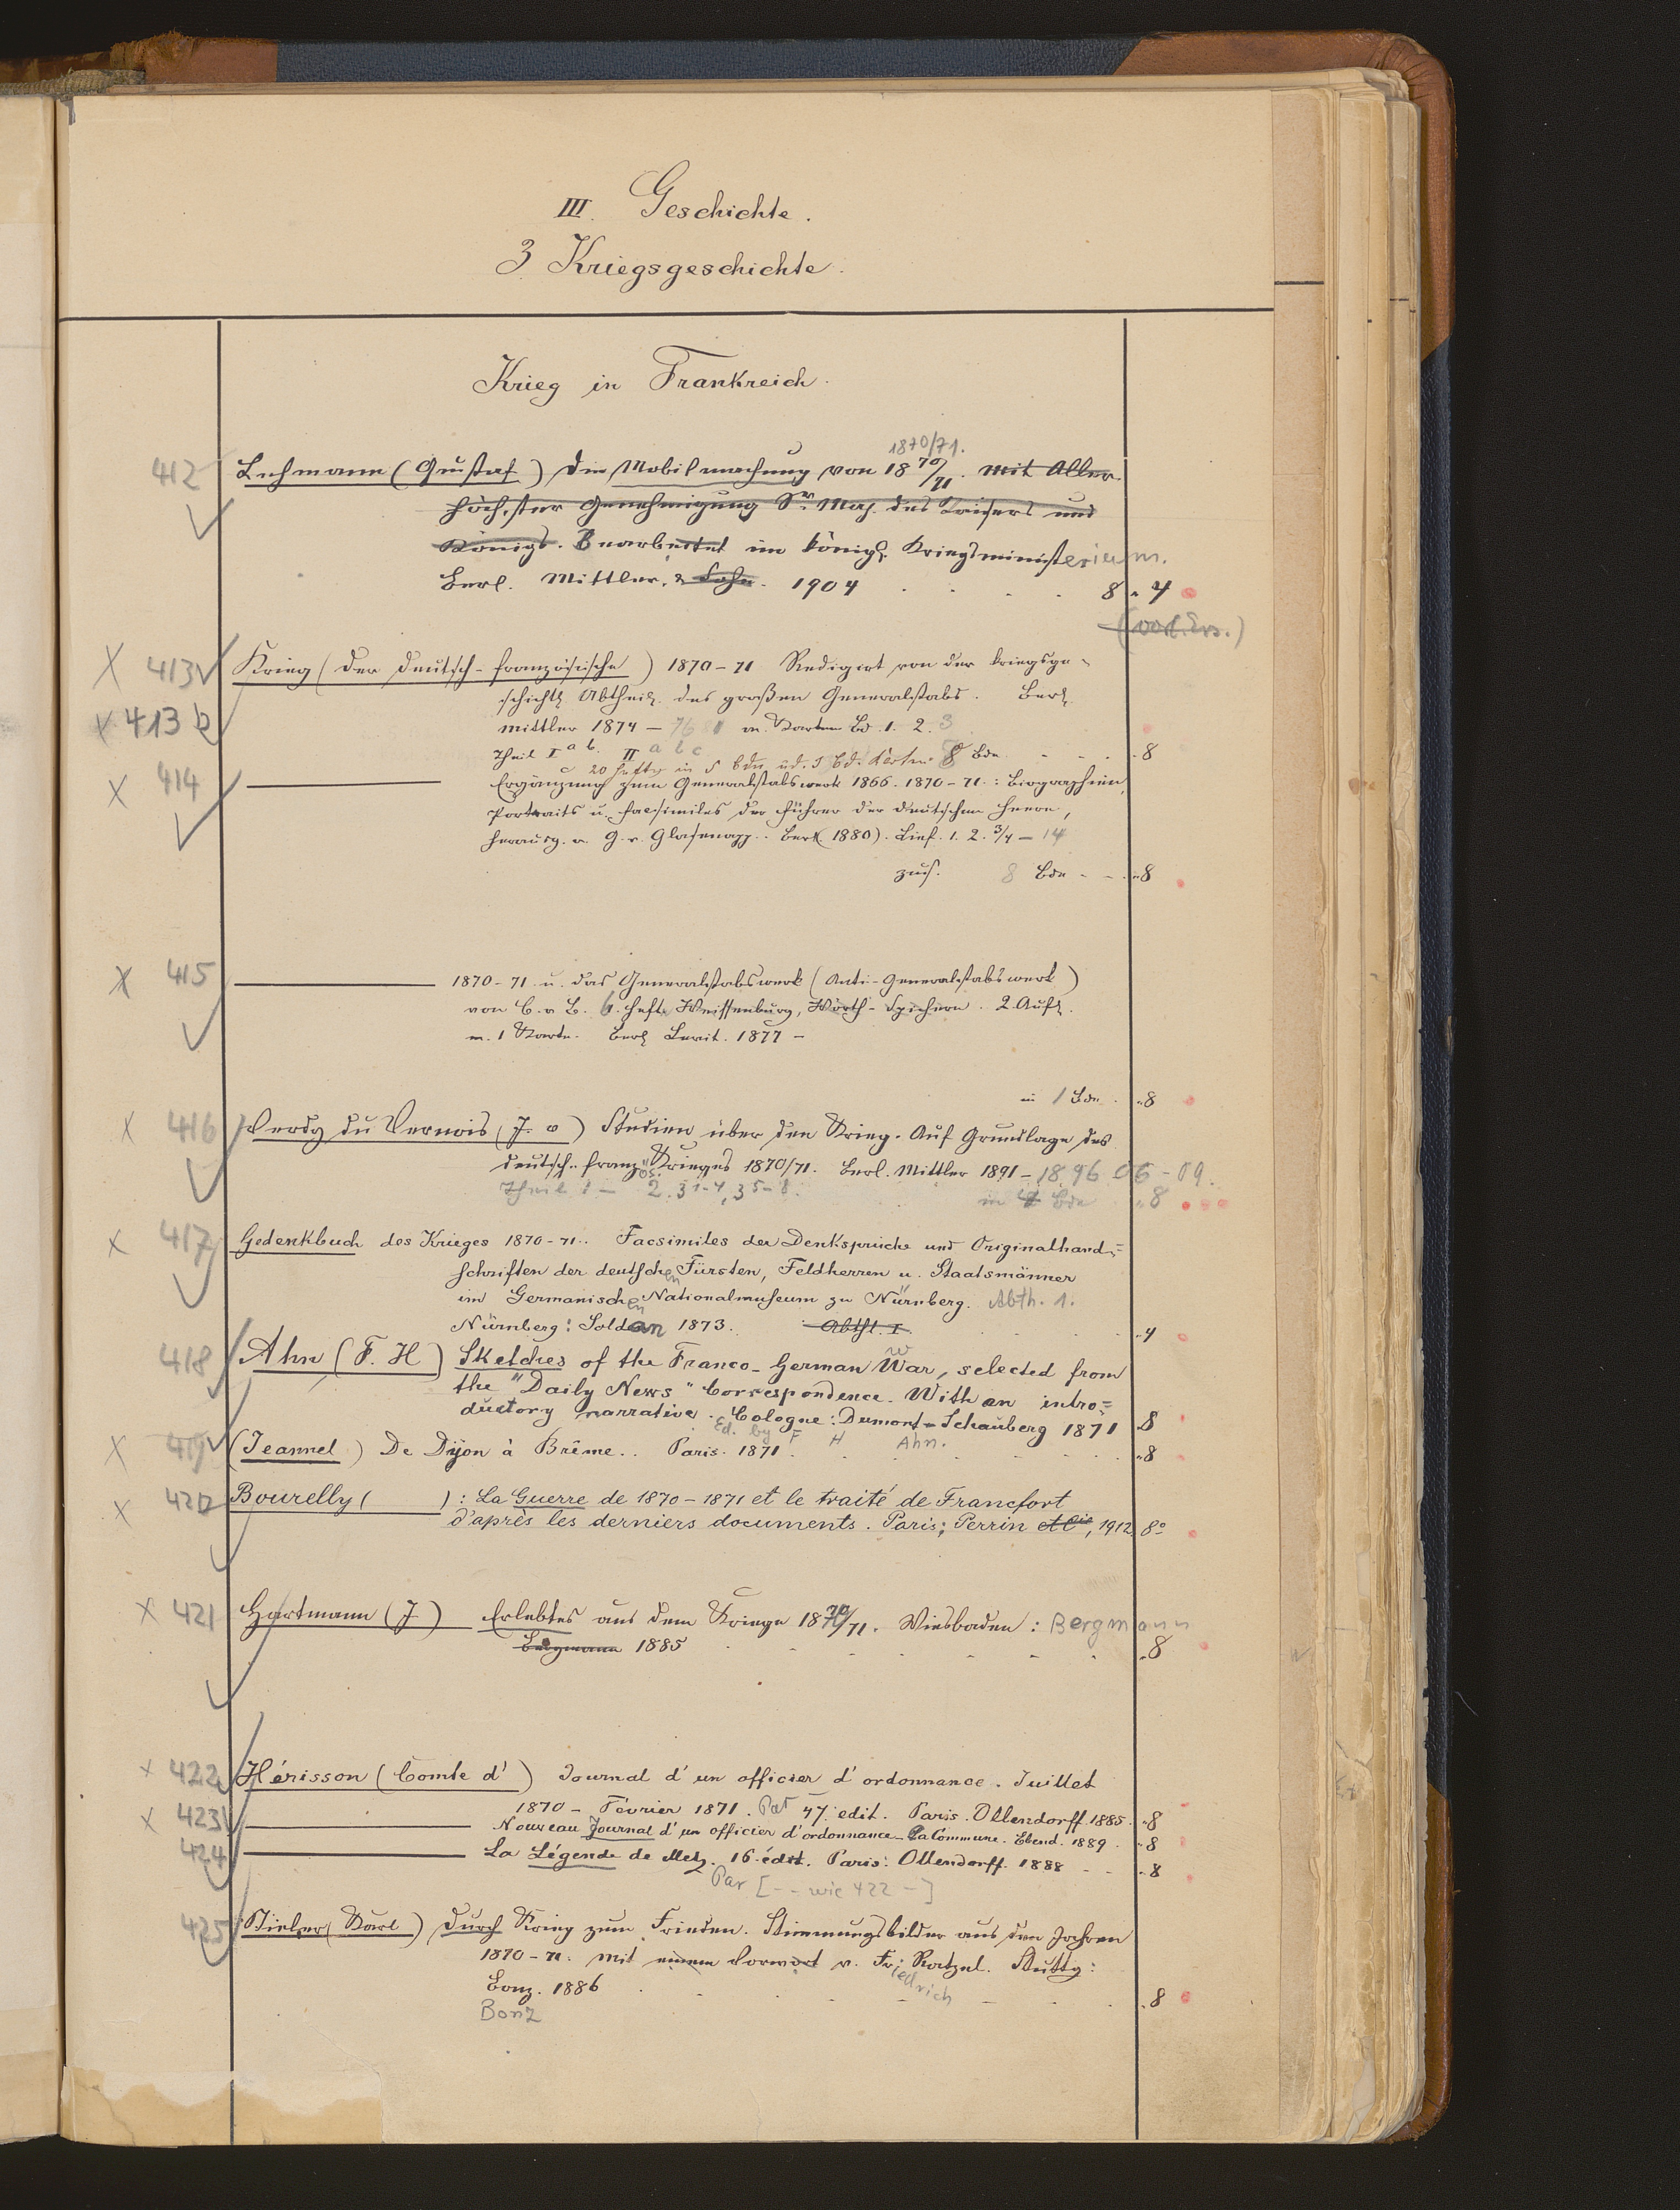 III. Geschichte.
3. Kriegsgeschichte.
Krieg in Frankreich.
1870/71.
412 Lehmann (Gustaf) Die Mobilmachung von 1870/71. mit Aller-
höchster Genehmigung Sr. Maj. des Kaisers und
Königs. Bearbeitet im königl. Kriegsministerium.
Berl. Mittler. & Sohn. 1904 . . . . 8 „ 4
X 413 Krieg (der deutsch-französische) 1870-71 Redigirt von der kriegsge-
X 413 b schichtl. Abtheil. des großen Generalstabs. Berl.
Mittler 1874 - m. Karten Bd. 1. 2. 3
Theil I a b. II a b c 8 Bde. - - - . 8
c 20 Hefte in 5 Bdn
X 414 ——— Ergänzung zum Generalstabswerk 1866. 1870-71: Biographien,
Portraits u. Facsimiles der Führer der deutschen Heere,
herausg. v. G. v. Glasenapp. Berl. (1880). Lief. 1. 2. 3/4 - 14
zus. 8 Bde - - . „8
X 415 ——— 1870-71. u. das Generalstabswerk (Anti-Generalstabswerk)
von C. v. B. 1. Heft. Weissenburg, Wörth-Spichern. 2. Aufl.
m. 1 Karte. Berl. 1877 -
in 1 Bde. . „8
X 416 Verdy du Vernois (J. v) Studien über den Krieg. Auf Grundlage des
deutsch-französ. Krieges 1870/71. Berl. Mittler 1891 - 1896 06 - 09.
Theil 1 - 2. 3 1-4, 3 5-8. in Bde „8
X 417 Gedenkbuch des Krieges 1870-71.. Facsimiles der Denksprüche und Originalhand-
schriften der deutschen Fürsten, Feldherren u. Staatsmänner
im Germanischen Nationalmuseum zu Nürnberg. Abth. 1.
Nürnberg: Soldan 1873. Abthl. I. . . . . „4
418 Ahn (F. H) Sketches of the Franco-German War, selected from
the "Daily News" Correspondence. With an intro=
ductory narrative. Cologne: Dumont-Schauberg 1871 8
Ed. by F H Ahn.
X 419 (Jeannel) De Dijon à Brême.. Paris. 1871. . . . . „8
X 420 Bourelly ( ): La Guerre de 1870-1871 et le traité de Francfort
d'après les derniers documents. Paris; Perrin et Cie, 1912 8°
X 421 Hartmann (J) Erlebtes aus dem Kriege 1870/71. Wiesbaden: Bergmann
Bergmann 1885 . . . . „8
X 422 Hérisson (Comte d') Journal d'un officier d'ordonnance. Juillet
1870 - Février 1871. 47. edit. Paris. Ollendorff. 1885. „8
X 423 ——— Nouveau Journal d'un officier d'ordonnance - La Commune. Ebend. 1889. „8
424 ——— La Légende de Metz. 16. édit. Paris: Ollendorff. 1888 - - „8
Par [- - wie 422 -]
425 Stieler (Karl) Durch Krieg zum Frieden. Stimmungsbilder aus den Jahren
1870-71. Mit einem Vorwort v. Friedrich Ratzel. Stuttg:
Bonz. 1886 . . . . . 8
Bonz